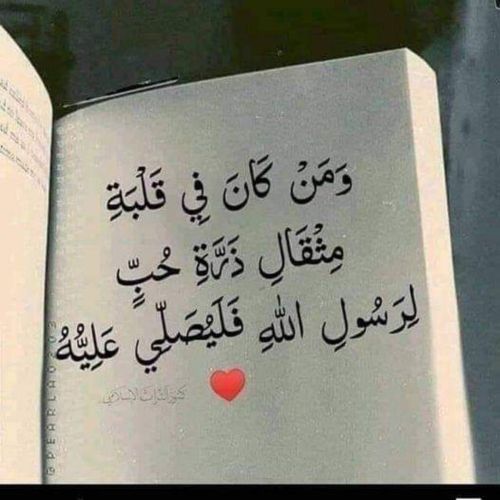 وَمَنْ كَانَ فِي قَلْبَةِ
مِثْقَالِ ذَرَّةِ حُبٍّ
لِرَسُولِ اللهِ فَلَيُصَلِّي عَلِيُّهُ
كنوز التراث الإسلامي
@PEARLAV